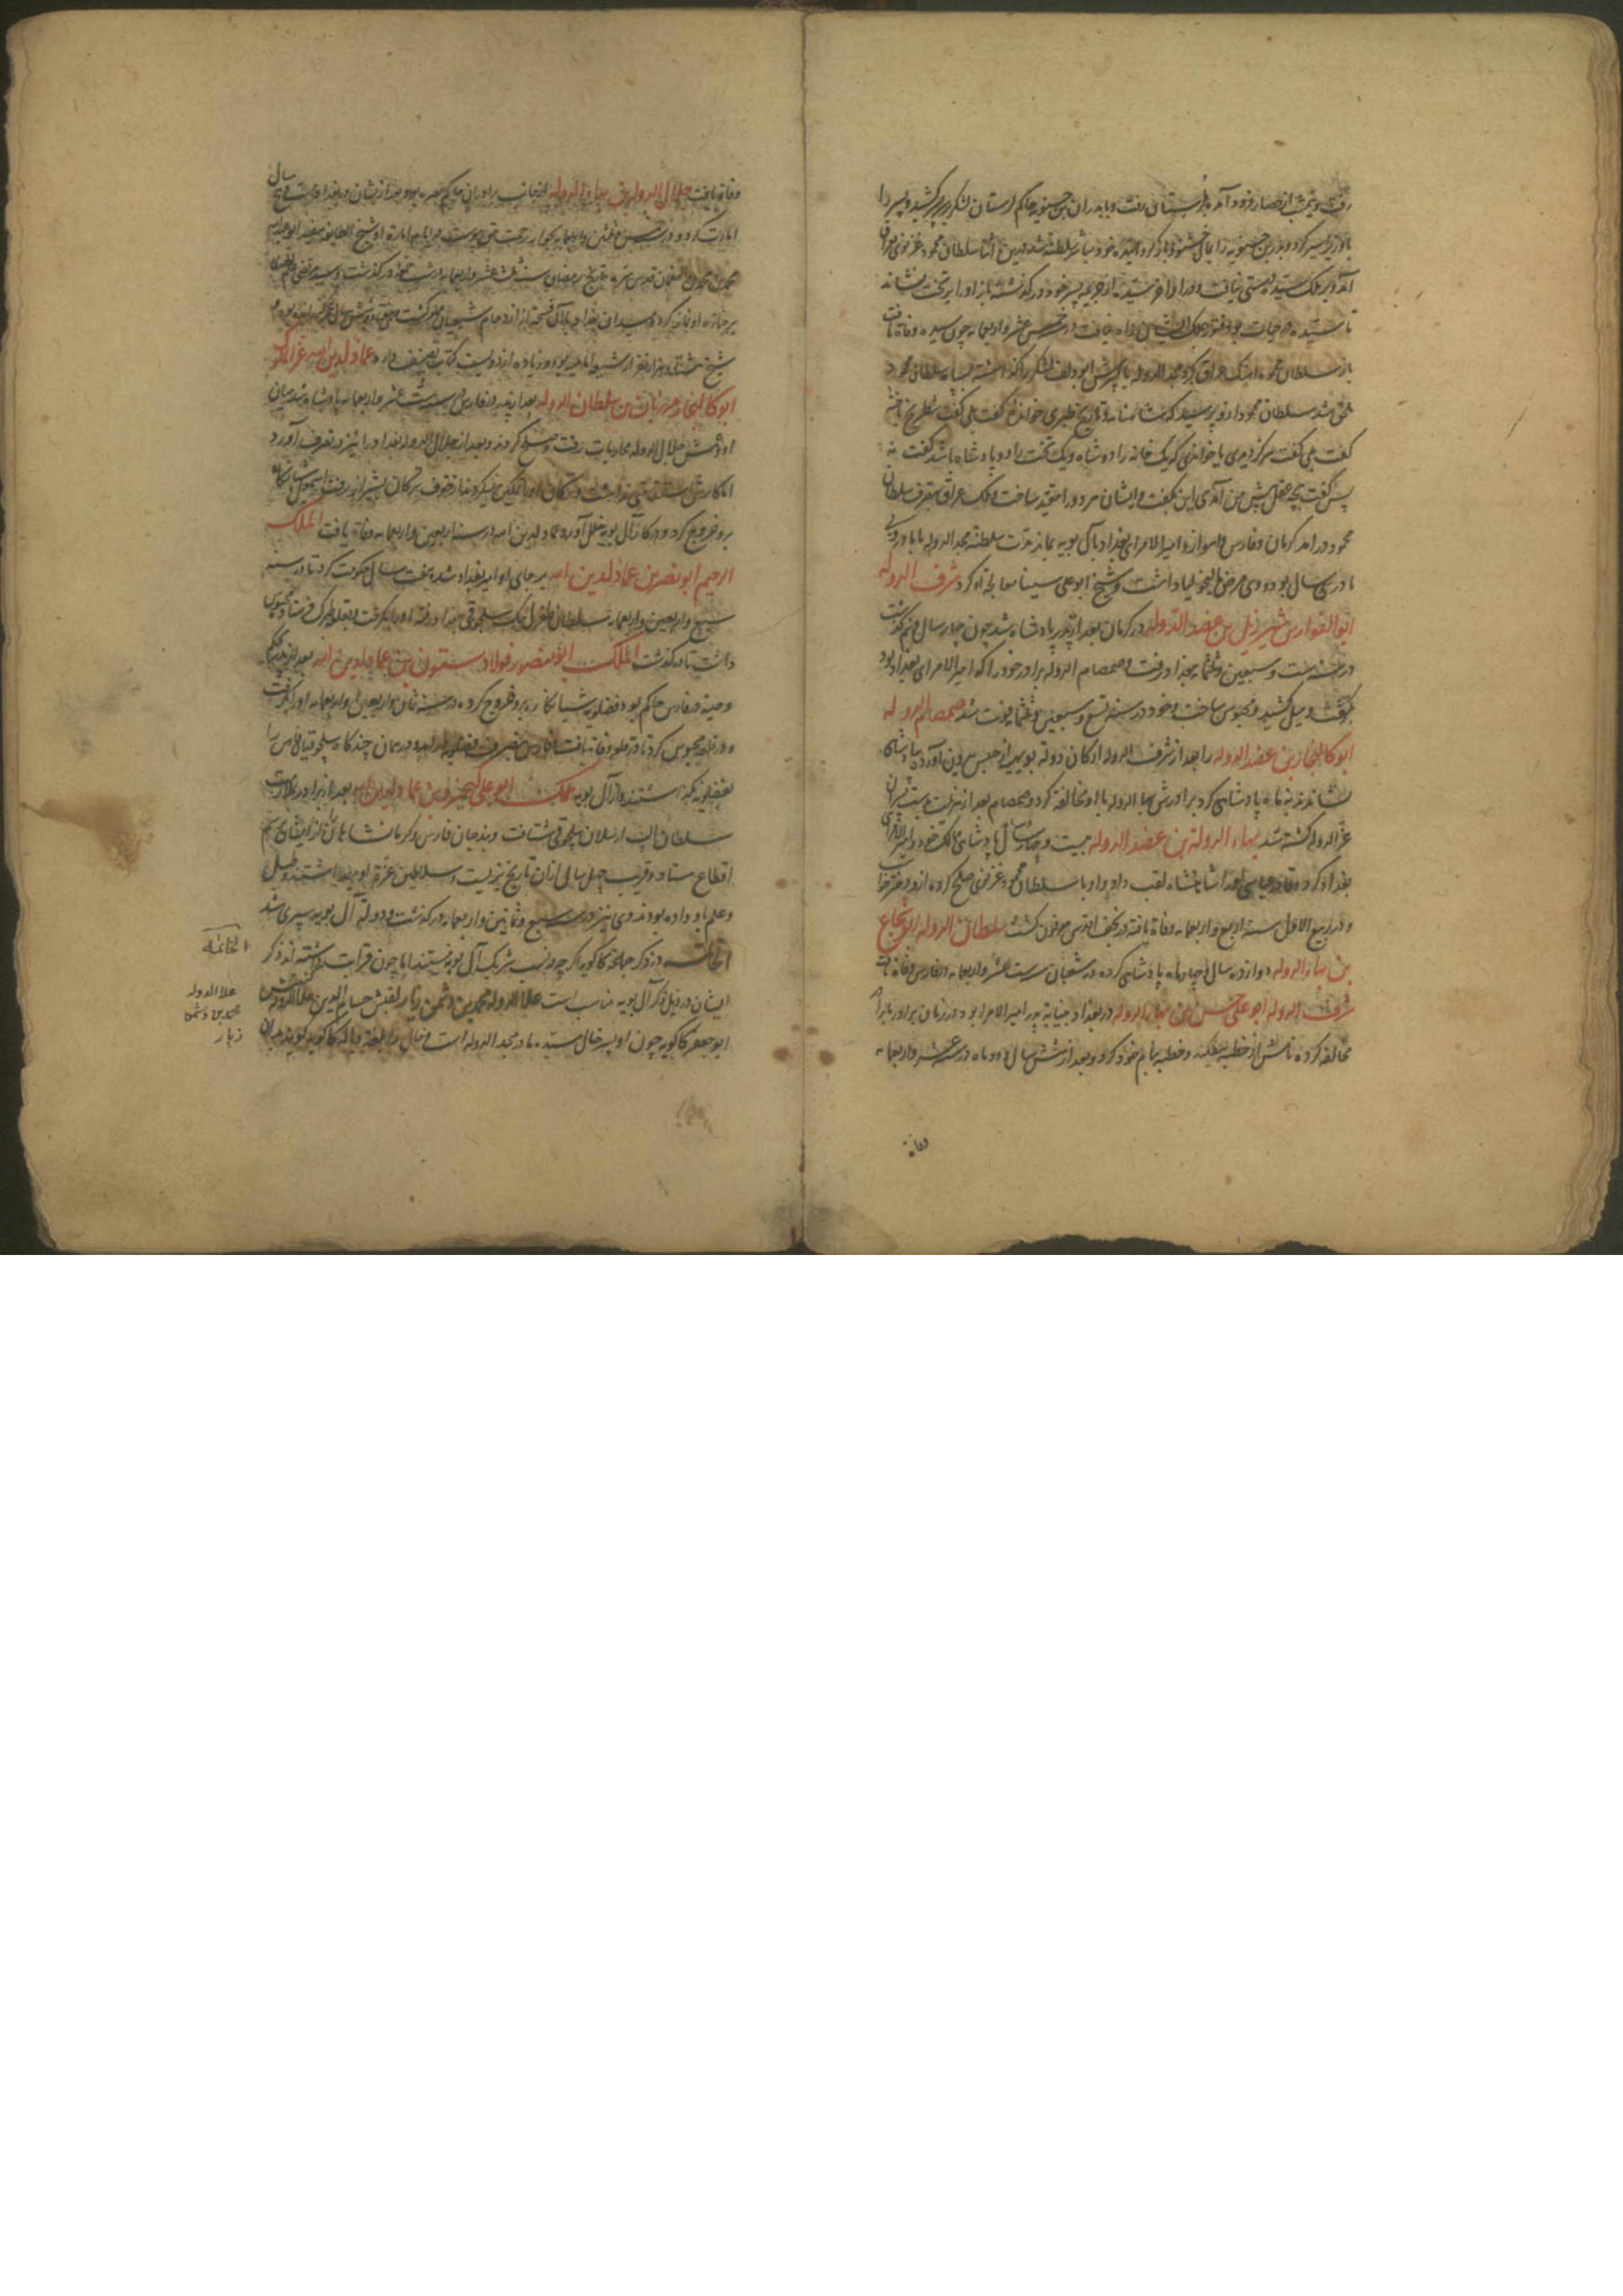 رفت و شب از حصار فرود آمده بلرستان رفت و با بدر بن حسنویه حاکم لرستان لشکر بر سر ری کشید و پسر را
با وزیر اسیر کرد و بدر بن حسنویه را بمال خشنود باز گردانید خود مباشر سلطنة شد درین اثنا سلطان محمود غزنوی
آمد و بر ملک سیده دستی نیافت بعد از آخر سیده از جریمه پسر خود در گذشته باز او را بر تخت نشاند
تا سیده در حیات بود فتور بملک ایشان راه نیافت در خمس عشر و اربعمایه چون سیده وفاة یافت
باز سلطان محمود آهنگ عراق کرد مجد الدوله با پسرش ابو دلف لشکر را گذاشته بسپاه سلطان محمود
ملحق شد سلطان محمود از او پرسید که شاهنامه و تاریخ طبری خوانده گفت بلی گفت شطرنج باخته
گفت بلی گفت هرگز دیدی یا خواندی که یک خانه را دو شاه و یک تخت را دو پادشاه باشد گفت نه
پس گفت بچه عقل پیش من آمدی این بگفت و ایشان هر دو را مقید ساخت و ملک عراق بتصرف سلطان
محمود در آمد کرمان و فارس و اهواز و امیر الامرای بغداد با آل بویه بماند مدت سلطنة مجد الدوله با مادر و بی
مادر سی سال بود و وی مرض مالیخولیا داشت و شیخ ابو علی سینا معالجه او کرد شرف الدوله
ابو الفوارس شیرزیل بن عضد الدوله در کرمان بعد از پدر پادشاه شد چون چهار سال و نیم گذشت
در سنه ست و سبعین و ثلثمایه ببغداد رفت و صمصام الدوله برادر خود را که امیر الامرای بغداد بود
بگرفت و میل کشید و محبوس ساخت و خود در سنه تسع و سبعین و ثلثمایه فوت شد صمصام الدوله
ابو کالیجار بن عضد الدوله را بعد از شرف الدوله ارکان دولة بویهیه از حبس بیرون آورده بپادشاهی
نشاندند نه ماه پادشاهی کرد برادرش بهاء الدوله با او مخالفة کرد و صمصام بعد از هزیمت بدست پسران
عز الدوله کشته شد بهاء الدولة بن عضد الدوله بیست و چهار سال پادشاهی ملک خود و امیر الامرای
بغداد کرد و قادر عباسی او را شاهنشاه لقب داد و او با سلطان محمود غزنوی صلح کرده از او دختر خواست
و در ربیع الاول سنه اربع و اربعمایه وفاة یافته در نجف اقدس مدفون گشت سلطان الدوله ابو شجاع
بن بهاء الدوله دوازده سال و چهار ماه پادشاهی کرده در شعبان سنه ست عشر و اربعمایه در فارس وفاة یافت
شرف الدوله ابو علی حسن بن بهاء الدوله در بغداد بنیابة پدر امیر الامرا بود و در زمان برادر با برادر
مخالفه کرده نامش از خطبه بیفکند و خطبه بنام خود کرد و بعد از شش سال و دو ماه در ست عشر و اربعمایه
وفاة
وفاة یافت جلال الدولة بن بهاء الدوله از جانب برادران حاکم بصره بود بعد از ایشان در بغداد بیست و پنج سال
امارت کرد و در خمس و ثلثین و اربعمایه بجوار رحمت حق پیوست در ایام امارة او شیخ الطایفه مفید ابو عبد الله
محمد بن محمد بن النعمان قدس سره بتاریخ رمضان سنه ثلث عشر و اربعمایه در گذشت و سید مرتضی علم الهدی
بر جنازه او نماز کرد و میدان بغداد با آن فسحة از ازدحام شیعیان مملو گشت هفتاد و شش سال عمر کرده بود
شیخ هشتاد هزار نفر از شیعه امامیه بود و زیاده از دویست کتاب تصنیف دارد عماد لدین الله عز الملک
ابو کالیجار مرزبان بن سلطان الدوله بعد از پدر در فارس در سنه ست عشر و اربعمایه پادشاه شد میان
او و عمش جلال الدوله محاربات رفت و صلح کردند و بعد از جلال الدوله بغداد را نیز در تصرف آورد
اما کارش استقامتی نداشت و ترکان او را تمکین نمیکردند از خوف ترکان بشیراز رفت
برو خروج کرد و در کار آل بویه خلل آورد عماد لدین الله در سنه اربعین و اربعمایه وفاة یافت الملک
الرحیم ابو نصر بن عماد لدین الله بر جای او امیر بغداد شده هفت سال حکومت کرد تا در سنه
سبع و اربعین و اربعمایه سلطان طغرل بک سلجوقی ببغداد رفته او را بگرفت و بقلعه طبرک فرستاد محبوس
داشت تا در گذشت الملک ابو منصور فولاد ستون بن عماد لدین الله بعد از پدر بحکم
وصیة در فارس حاکم بود فضلویه شبانکاره برو خروج کرده در سنه ثمان و اربعین و اربعمایه او را بگرفت
و در قلعه محبوس کرد تا در قلعه وفاة یافت فارس بتصرف فضلویه در آمد و در همان چند گاه سلجوقیان فارس را
بفضلویه نگذاشتند و از آل بویه ملک ابو علی کیخسرو بن عماد لدین الله بعد از برادر بملازمت
سلطان الب ارسلان سلجوقی شتافت و بندجان فارس و کرمانشاهان از ایشان برسم
اقطاع ستاد و قریب چهل سال از آن تاریخ بزیست و سلاطین عزة او میداشتند و طبل
و علم باو داده بودند وی نیز در سنه سبع و ثمانین و اربعمایه در گذشت و دولة آل بویه سپری شد
الخاتمه در ذکر جماعة کاکویه اگر چه در نسب شریک آل بویه نیستند اما چون قرابت داشته اند ذکر
ایشان در ذیل ذکر آل بویه مناسب است علاء الدوله محمد بن دشمن زیار لقبش حسام الدین علاء الدوله کنیتش
ابو جعفر کاکویه چون او پسر خال سیده مادر مجد الدوله است و خال را بلغة دیالمه کاکویه گویند
الخاتمه
علاء الدوله
محمد بن دشمن
زیار